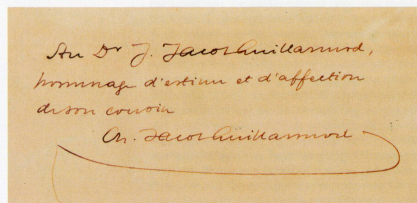 Au Dr J. Jacot Guillarmod,
hommage d'estime et d'affection
de son cousin
Ch. Jacot Guillarmod